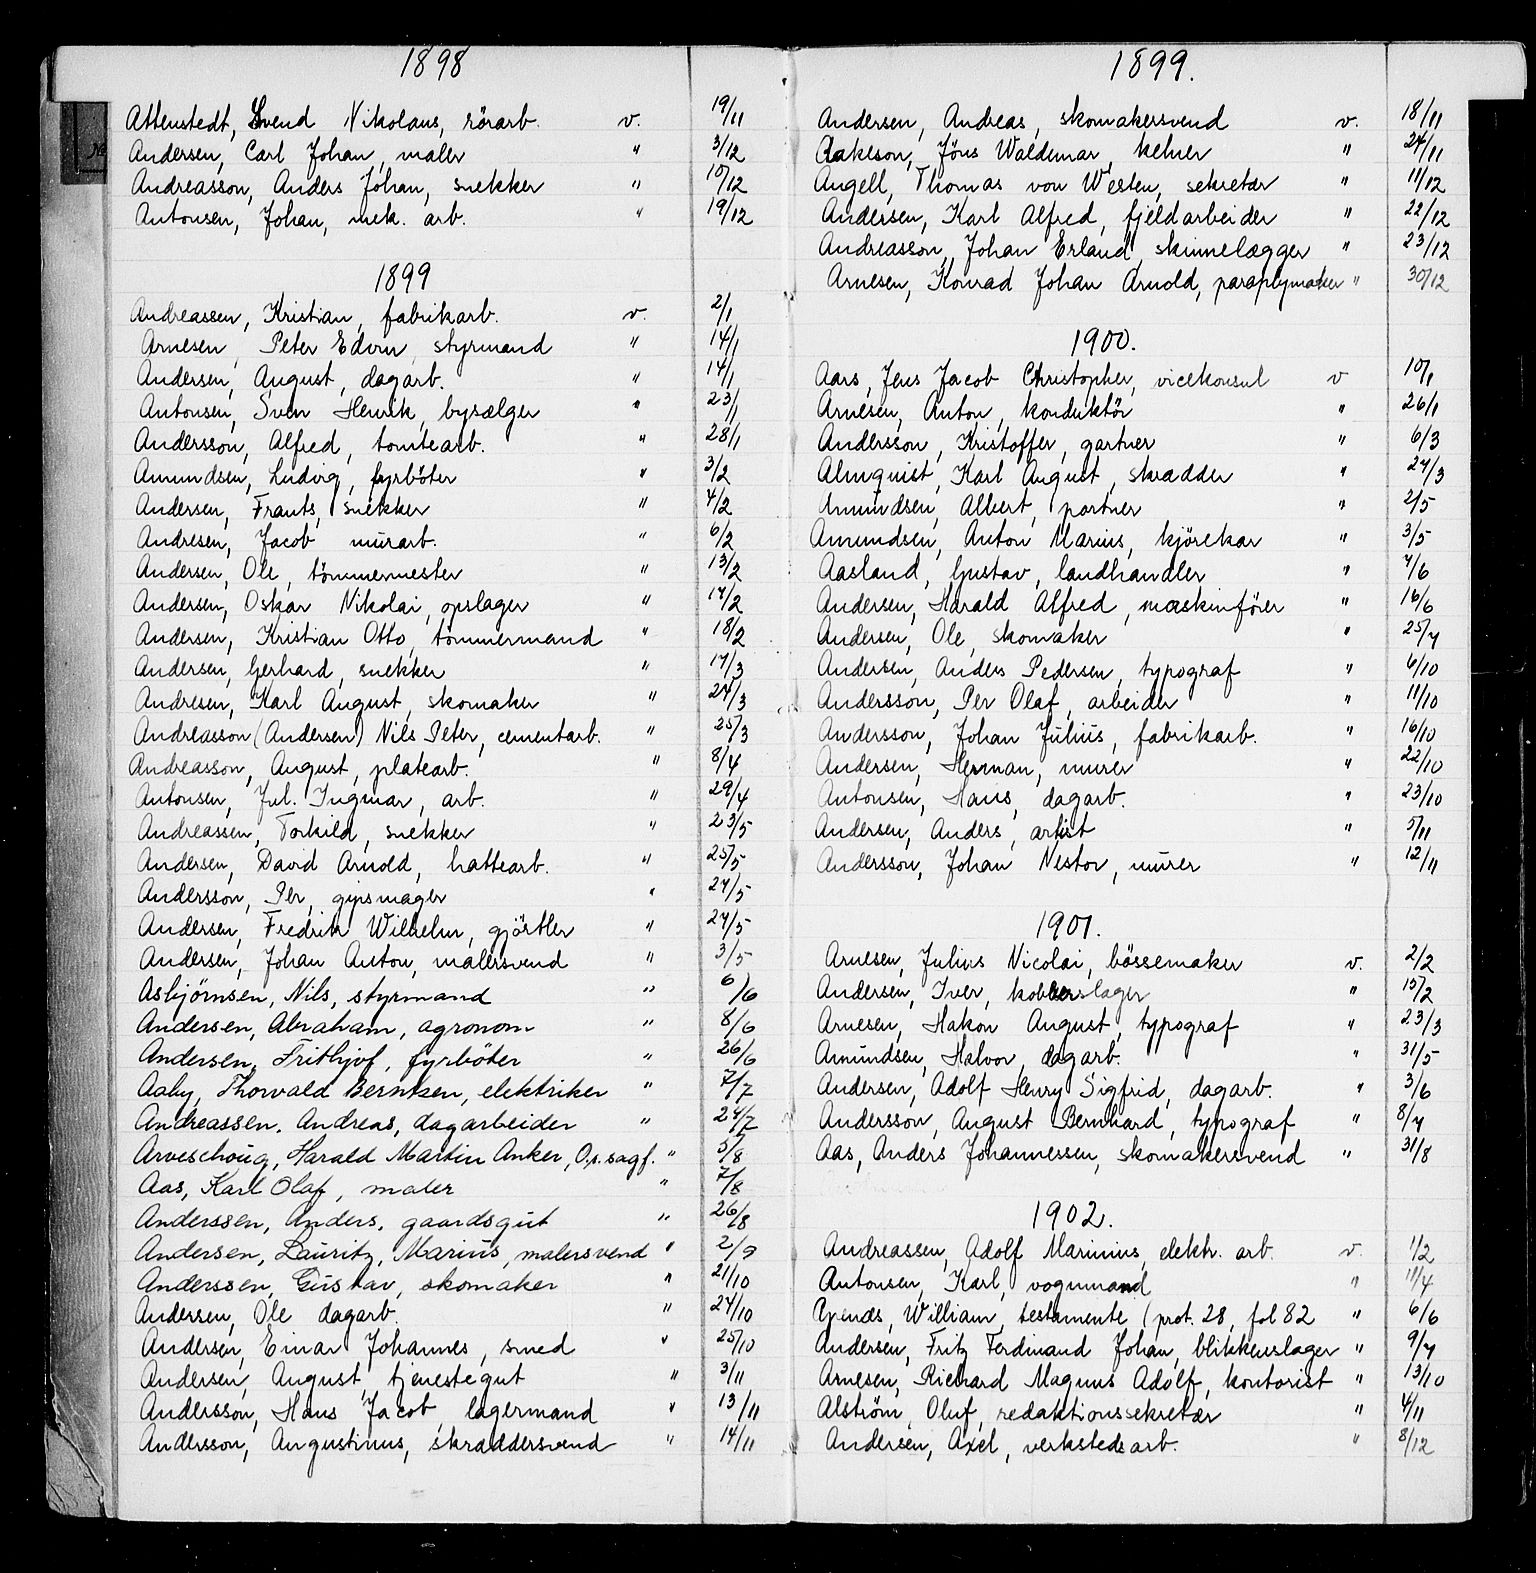 1898
Attenstedt, Svend Nikolaus, rörarb. v. 19/11
Andersen, Carl Johan, maler " 3/12
Andreasson, Anders Johan, snekker " 10/12
Antonsen, Johan, mek. arb. " 19/12
1899
Andreassen, Kristian, fabrikarb. v. 2/1
Arnesen, Peter Edvin, styrmand " 14/1
Andersen, August, dagarb. " 14/1
Antonsen, Sven Henrik, bysælger " 23/1
Andersson, Alfred, tomtearb. " 28/1
Amundsen, Ludvig, fyrböter " 3/2
Andersen, Frants, snekker " 4/2
Andresen, Jacob murarb. " 6/2
Andersen, Ole, tömmermester " 13/2
Andersen, Oskar Nikolai, opslager " 17/2
Andersen, Kristian Otto, tömmermand " 18/2
Andersen, Gerhard, snekker " 17/3
Andresen, Karl August, skomaker " 24/3
Andreasson (Andersen) Nils Peter, cementarb. " 25/3
Andreasson, August, platearb. " 8/4
Antonsen, Jul. Ingmar, arb. " 29/4
Andreassen, Torkild, snekker " 23/5
Andersen, David Arnold, hattearb. " 25/5
Andersson, Per, gipsmager " 27/5
Andersen, Fredrik Wilhelm, gjörtler " 27/5
Andersen, Johan Anton, malersvend " 3/5
Asbjørnsen, Nils, styrmand " 6/6
Andersen, Abraham, agronom " 8/6
Andersen, Frithjof, fyrböter " 26/6
Aaby, Thorvald Berntsen, elektriker " 7/7
Andreassen, Andreas, dagarbeider " 24/7
Arveschoug, Harald Martin Anker, O.r.sagf. " 5/8
Aas, Karl Olaf, maler " 7/8
Anderssen, Anders, gaardsgut " 26/8
Andersen, Lauritz, Marius, malersvend " 2/9
Anderssen, Gustav, skomaker " 21/10
Andersen, Ole dagarb. " 24/10
Andersen, Einar Johannes, smed " 25/10
Andersen, August, tjenestegut " 3/11
Andersson, Hans Jacob, lagermand " 13/11
Andersson, Augustinus, skræddersvend " 14/11
1899.
Andersen, Andreas, skomakersvend v. 18/11
Aakeson, Jöns Waldemar, kelner " 24/11
Angell, Thomas von Westen, sekretær " 11/12
Andersen, Karl Alfred, fjeldarbeider " 22/12
Andreasson, Johan Erland, skinnelægger " 23/12
Arnesen, Konrad Johan Arnold, paraplymaker " 30/12
1900.
Aars, Jens Jacob Christopher, vicekonsul v 10/1
Arnesen, Anton, konduktör " 26/1
Andersson, Kristoffer, gartner " 6/3
Almquist, Karl August, skrædder " 27/3
Amundsen, Albert, portner " 2/5
Amundsen, Anton Marius, kjörekar " 3/5
Aasland, Gustav, landhandler " 7/6
Andersen, Harald Alfred, maskinförer " 16/6
Andersen, Ole, skomaker " 25/7
Andersen, Anders Pedersen, typograf " 6/10
Andersson, Per Olaf, arbeider " 11/10
Andersson, Johan Julius, fabrikarb. " 16/10
Andersen, Herman, murer " 22/10
Antonsen, Hans, dagarb. " 23/10
Andersen, Anders, artist " 5/11
Andersson, Johan Nestor, murer " 12/11
1901.
Arnesen, Julius Nicolai, bössemaker v. 2/2
Andersen, Iver, kobberslager " 15/2
Arnesen, Hakon August, typograf " 23/3
Amundsen, Halvor, dagarb. " 31/5
Andersen, Adolf Henry Sigfrid, dagarb. " 3/6
Andersson, August Bernhard, typograf " 8/7
Aas, Anders Johannessen, skomakersvend " 31/8
1902.
Andreassen, Adolf Marinius, elektr. arb. v. 1/2
Antonsen, Karl, vognmand " 11/4
William, testamente (prot. 28, fol 82 " 6/6
Andersen, Fritz Ferdinand Johan, blikkenslager " 9/7
Arnesen, Richard Magnus Adolf, kontorist " 13/10
Alström, Oluf, redaktionssekretær " 4/11
Andersen, Axel, verkstedsarb. " 8/12